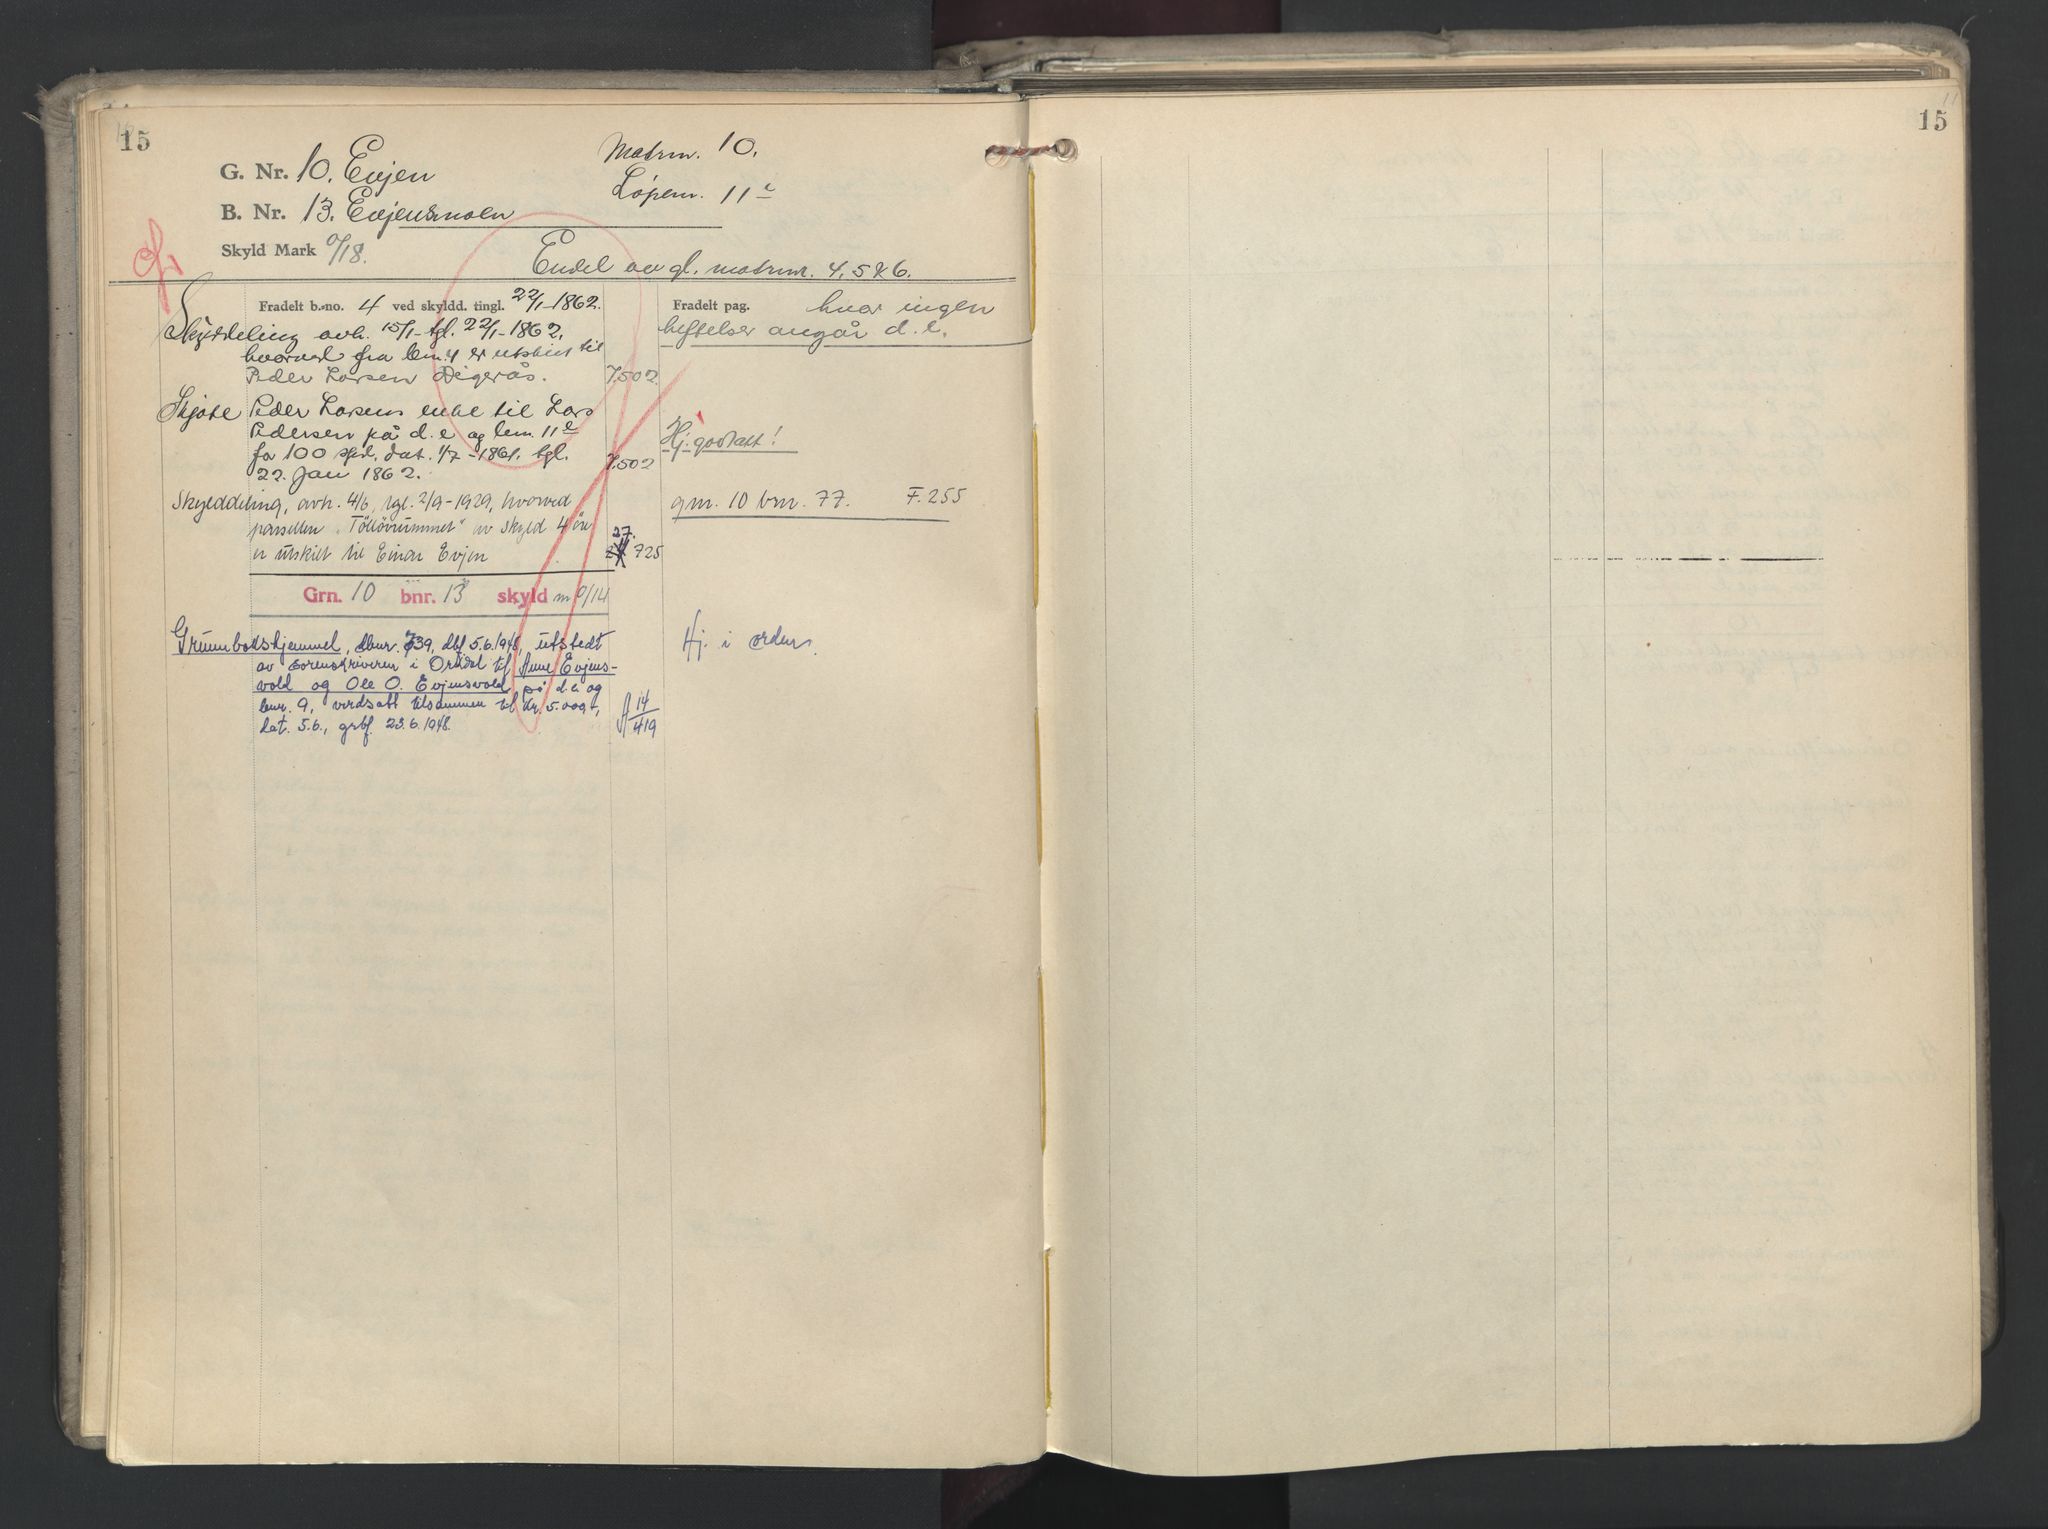 15
G. Nr. 10. Evjen
Matrnr. 10.
B. Nr. 13. Evjensmoen
Løpenr. 11c
Skyld Mark 0/18.
Endel av gl. matrnr. 4, 5 & 6.
Fradelt b.-no. 4 ved skyldd. tingl. 22/1-1862.
Fradelt pag. hvor ingen
heftelser angår d.e.
Skylddeling avh. 15/1- tgl. 22/1-1862,
hvorved fra bnr. 4 er utskilt til
Peder Larsen Digerås. 7.502.
Skjøte Peder Larsens enke til Lars
Pedersen på d.e og lnr. 11e
for 100 spd. dat. 1/7-1861, tgl.
22. Jan 1862. 7.502
Hj. godtatt!
Skylddeling, avh. 4/6, tgl. 2/9-1929, hvorved
parsellen "Töllövrummet" av skyld 4 øre
er utskilt til Einar Evjen 27. 725
gnr. 10 bnr. 77. F. 255
Grn. 10 bnr. 13 skyld m 0/14
Grunnbokshjemmel, dbnr. 739, dbf 5.6.1948, utstedt
av sorenskriveren i Orkdal til Anne Evjens-
vold og Ole O. Evjensvold på d.e. og
bnr. 9, verdsatt tilsammen til kr. 5.000,
dat. 5.6., grbf. 23.6.1948. A 14/419
Hj. i orden.
15